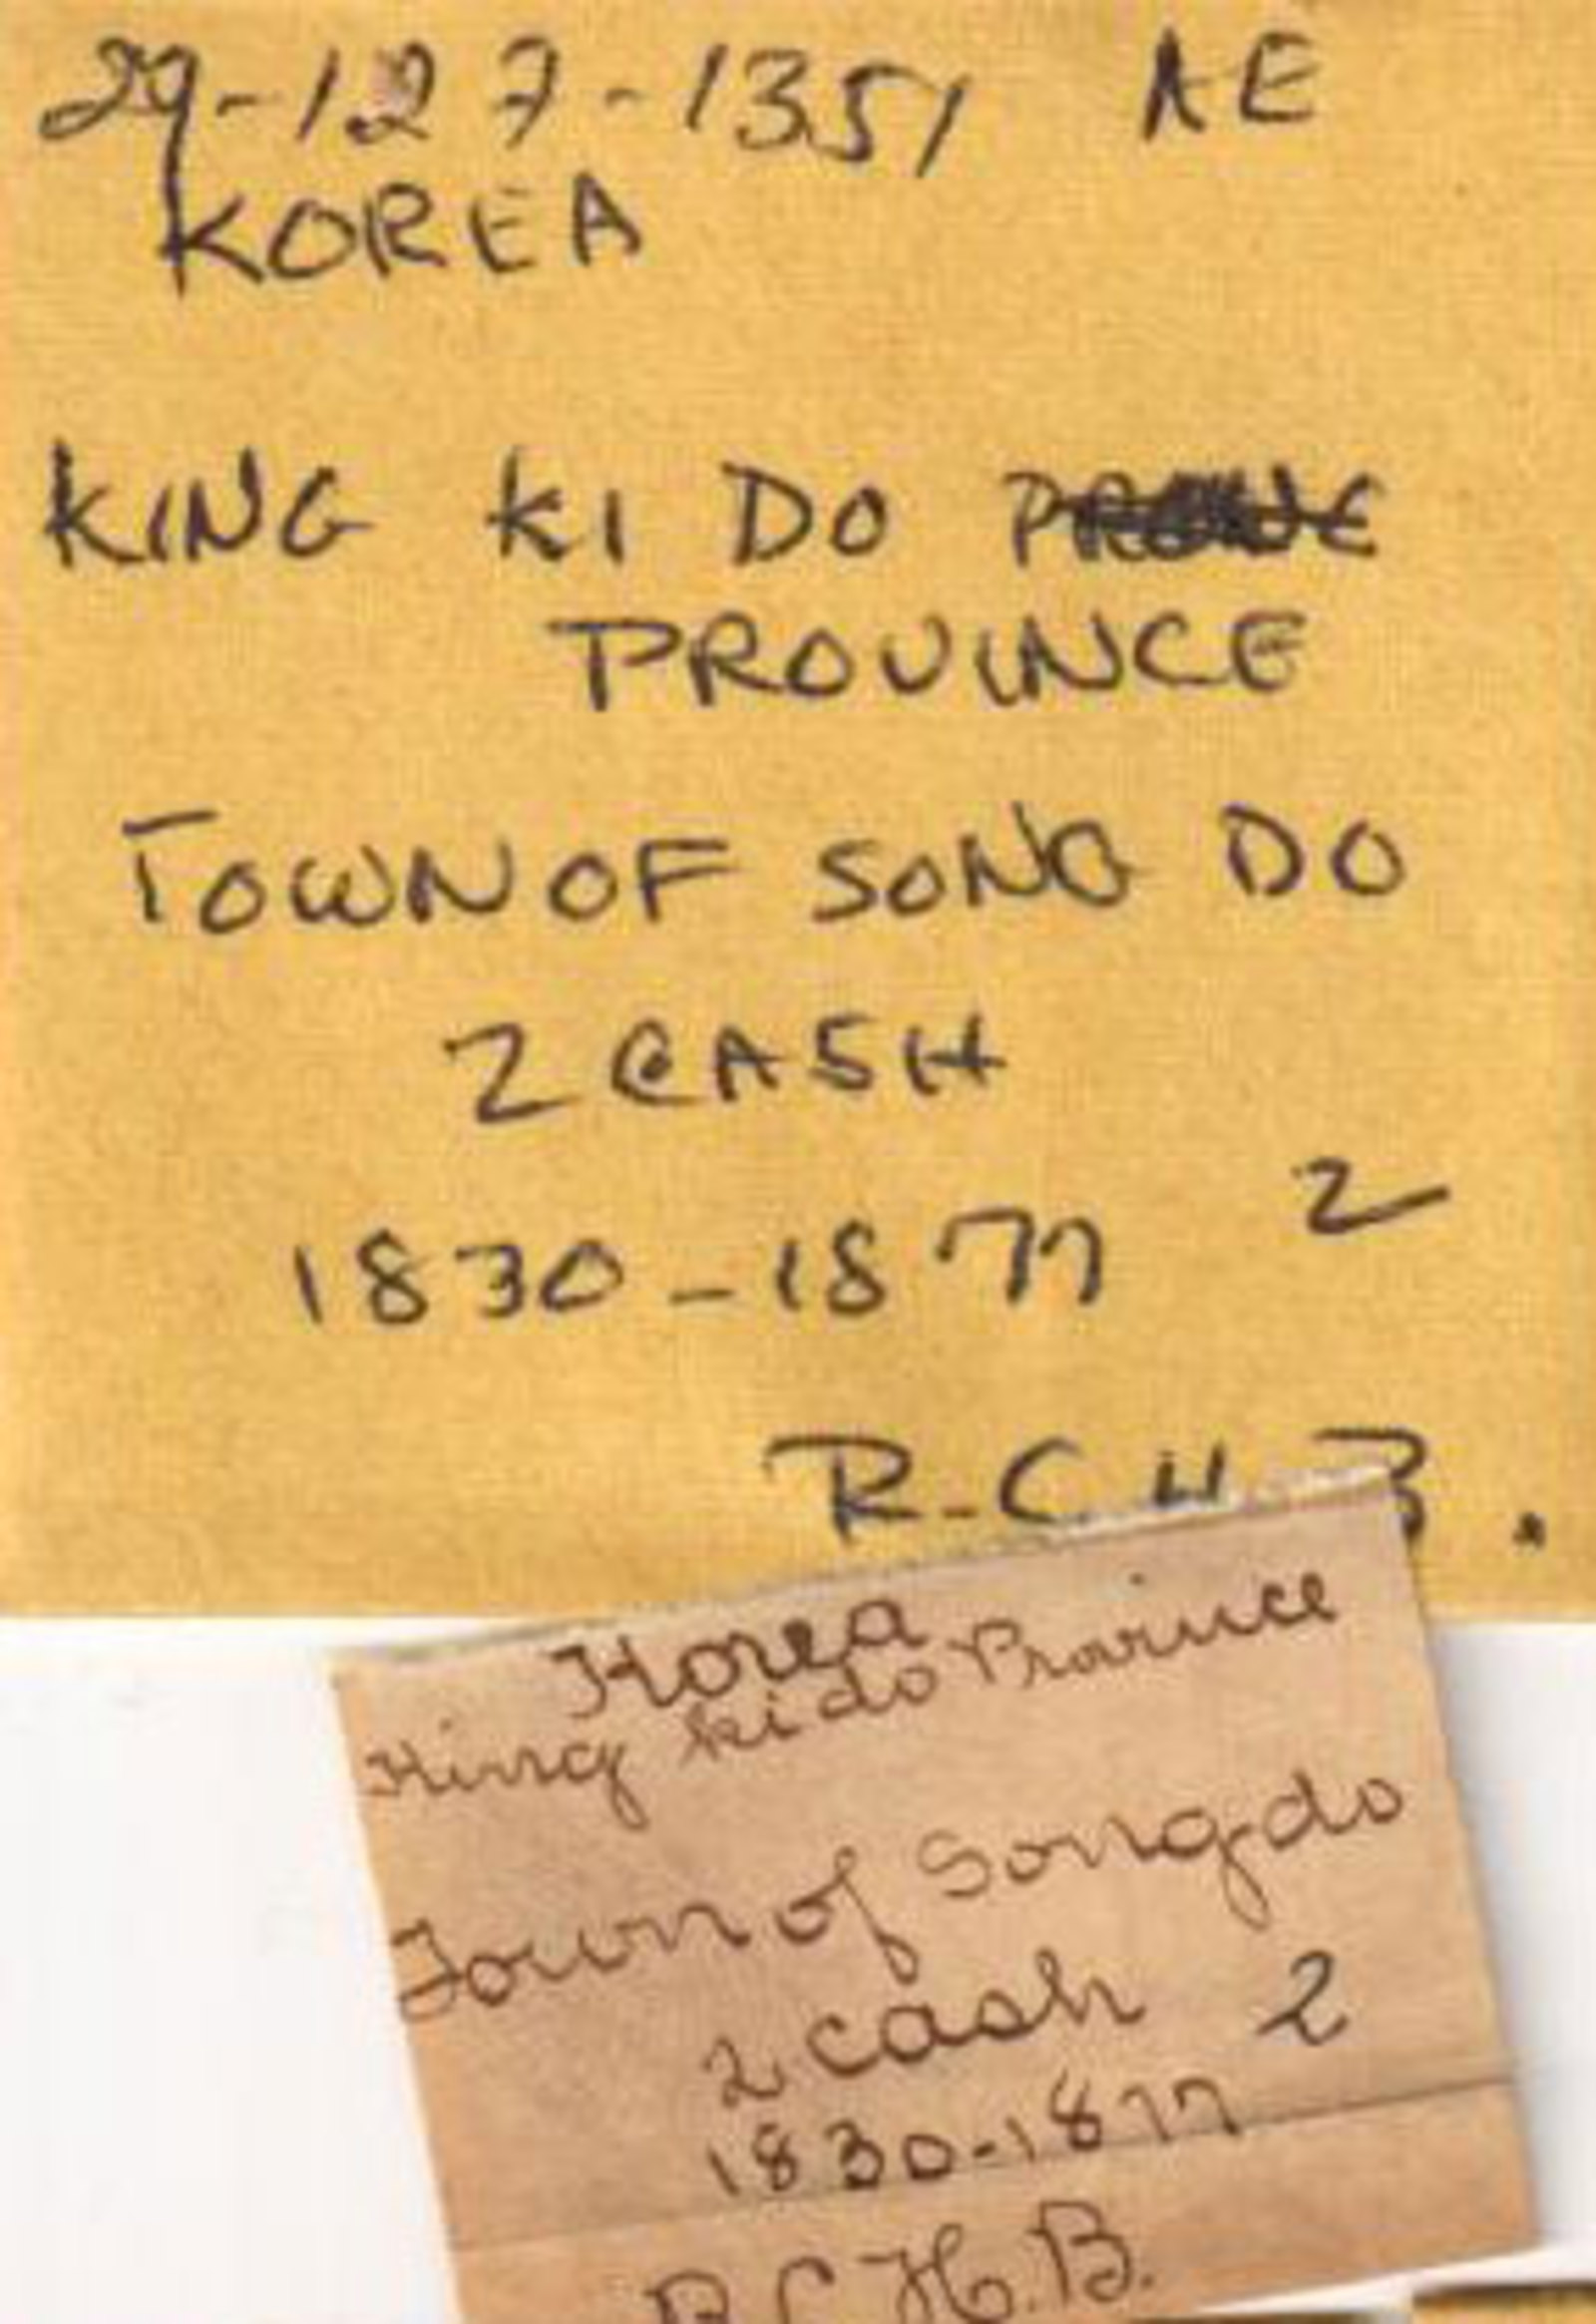 29-127-1351 AE
KOREA
KING KI DO
PROVINCE
TOWN OF SONG DO
2 CASH
2
1830-1877
R.C.H.B.
Korea
King ki do Province
Town of Songdo
2 cash 2
1830-1877
R.C.H.B.